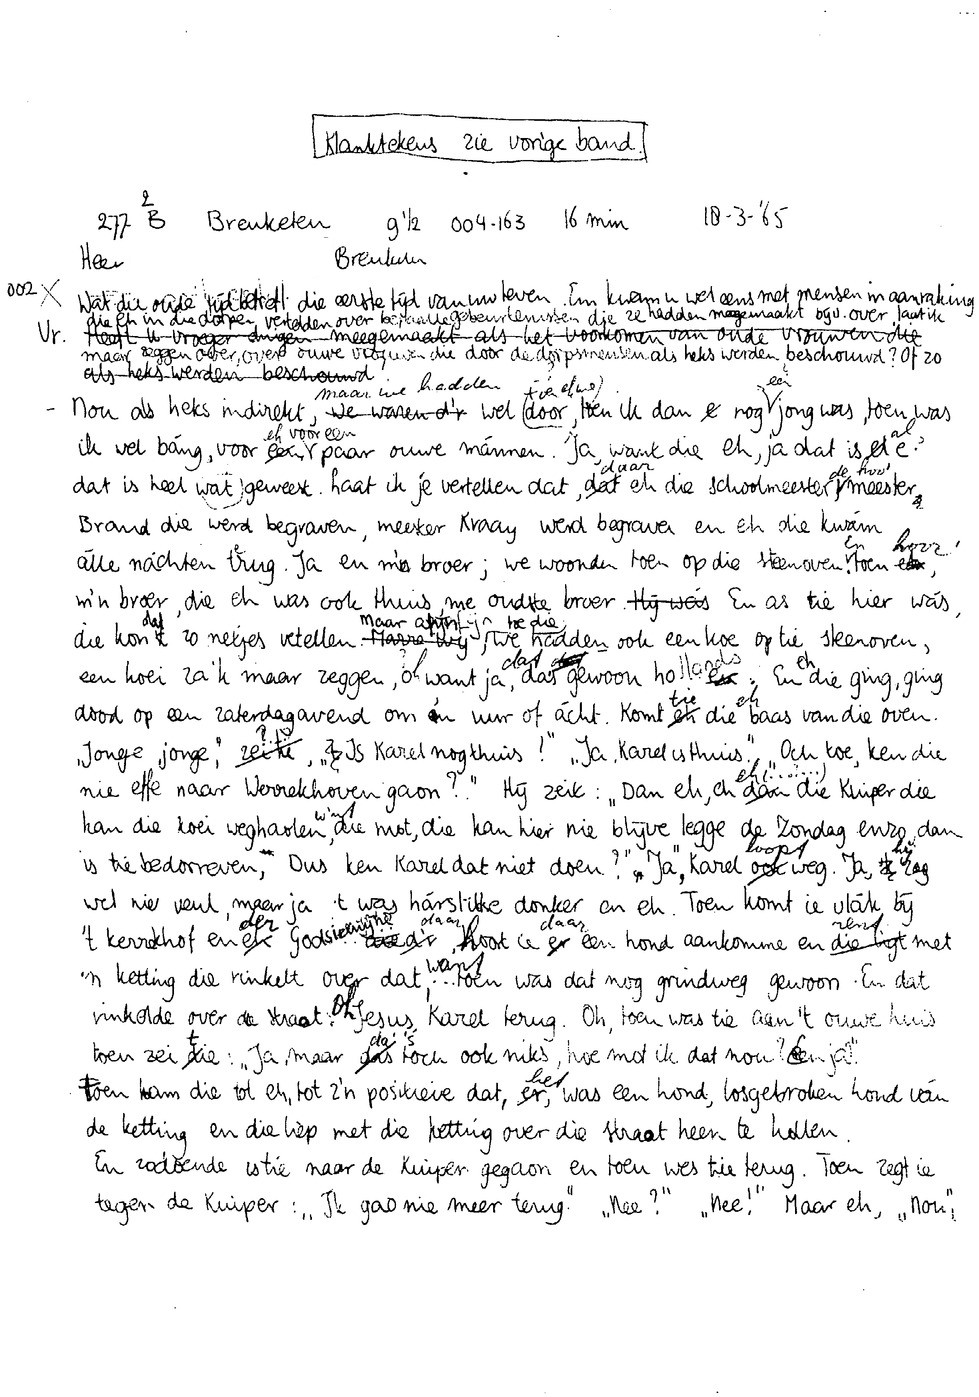 Klanktekens zie vorige band.
277 2B Breukelen 9 1/2 004-163 16 min 18-3-'65
Heer Breukelen
002 X Wat die oude tijd betreft die eerste tijd van uw leven. Em kwam u wel eens met mensen in aanraking
die eh in die dorpen vertelden over bepaalde gebeurtenissen die ze hadden meegemaakt bijv. over, laat ik
Vr. Heeft u vroeger dingen meegemaakt als het voorkomen van oude vrouwen die
maar zeggen over, over ouwe vrouwen die door de dorpsmensen als heks werden beschouwd? Of zo
als heks werden beschouwd
maar we hadden
- Nou als heks indirekt, we waren d'r wel door, toen ik dan e nog een jong was, toen was
eh voor een
ik wel báng, voor een paar ouwe mánnen. Ja, want die eh, ja dat is al
daar de hoo'
dat is heel wat geweest. Laat ik je vertellen dat, dat eh die schoolmeester, meester
Brand die werd begraven, meester Kraay werd begraven en eh die kwám
álle náchten trug. Ja en m'n broer; we woonden toen op die steenoven. En toen hoor,
m'n broer, die eh was ook thuis, me oudste broer. Hij was En as tie hier wás,
dat maar we die
die kon 't zo netjes vetellen. we hadden ook een koe op tie steenoven,
een koei za'k maar zeggen, oh want ja, das dat gewoon hollands. En eh die ging, ging
tie eh
dood op een zaterdagavend om én uur of ácht. Komt eh die baas van die oven.
"Jonge jonge," zei tie, "Is Karel nog thuis!" "Ja, Karel is thuis". "Och toe, ken die
nie effe naar Werrekhoven gaon?" Hij zeit: "Dan eh, eh dan die Kuiper die
want
kan die koei weghaolen, die mot, die kan hier nie blijve legge de Zondag enzo, dan
loopt hij
is tie bedorreven," Dus ken Karel dat niet doen?" "Ja", Karel ook weg. Ja, zag
wel nie veul, maar ja 't was hárstikke donker en eh. Toen komt ie vlák bij
der daar daar rent
't kerrekhof en eh Godsierlijke d'r, hoort ie er een hond aankomme en die ligt met
want
'n ketting die rinkelt over dat, toen was dat nog grindweg gewoon. En dat
rinkelde over de straat. Oh Jesus, Karel terug. Oh, toen was tie aan 't ouwe huis
da's
toen zei tie: "Ja, maar das toch ook niks, hoe mot ik dat nou? En ja".
het
Toen kwam die tot eh, tot z'n positieve dat, er, was een hond, losgebroken hond ván
de ketting en die liep met die ketting over die straat heen te hollen.
En zodoende is tie naar de Kuiper gegaon en toen wes tie terug. Toen zegt ie
tegen de Kuiper: "Ik gao nie meer terug" "Nee?" "Nee!" Maar eh, "Nou",